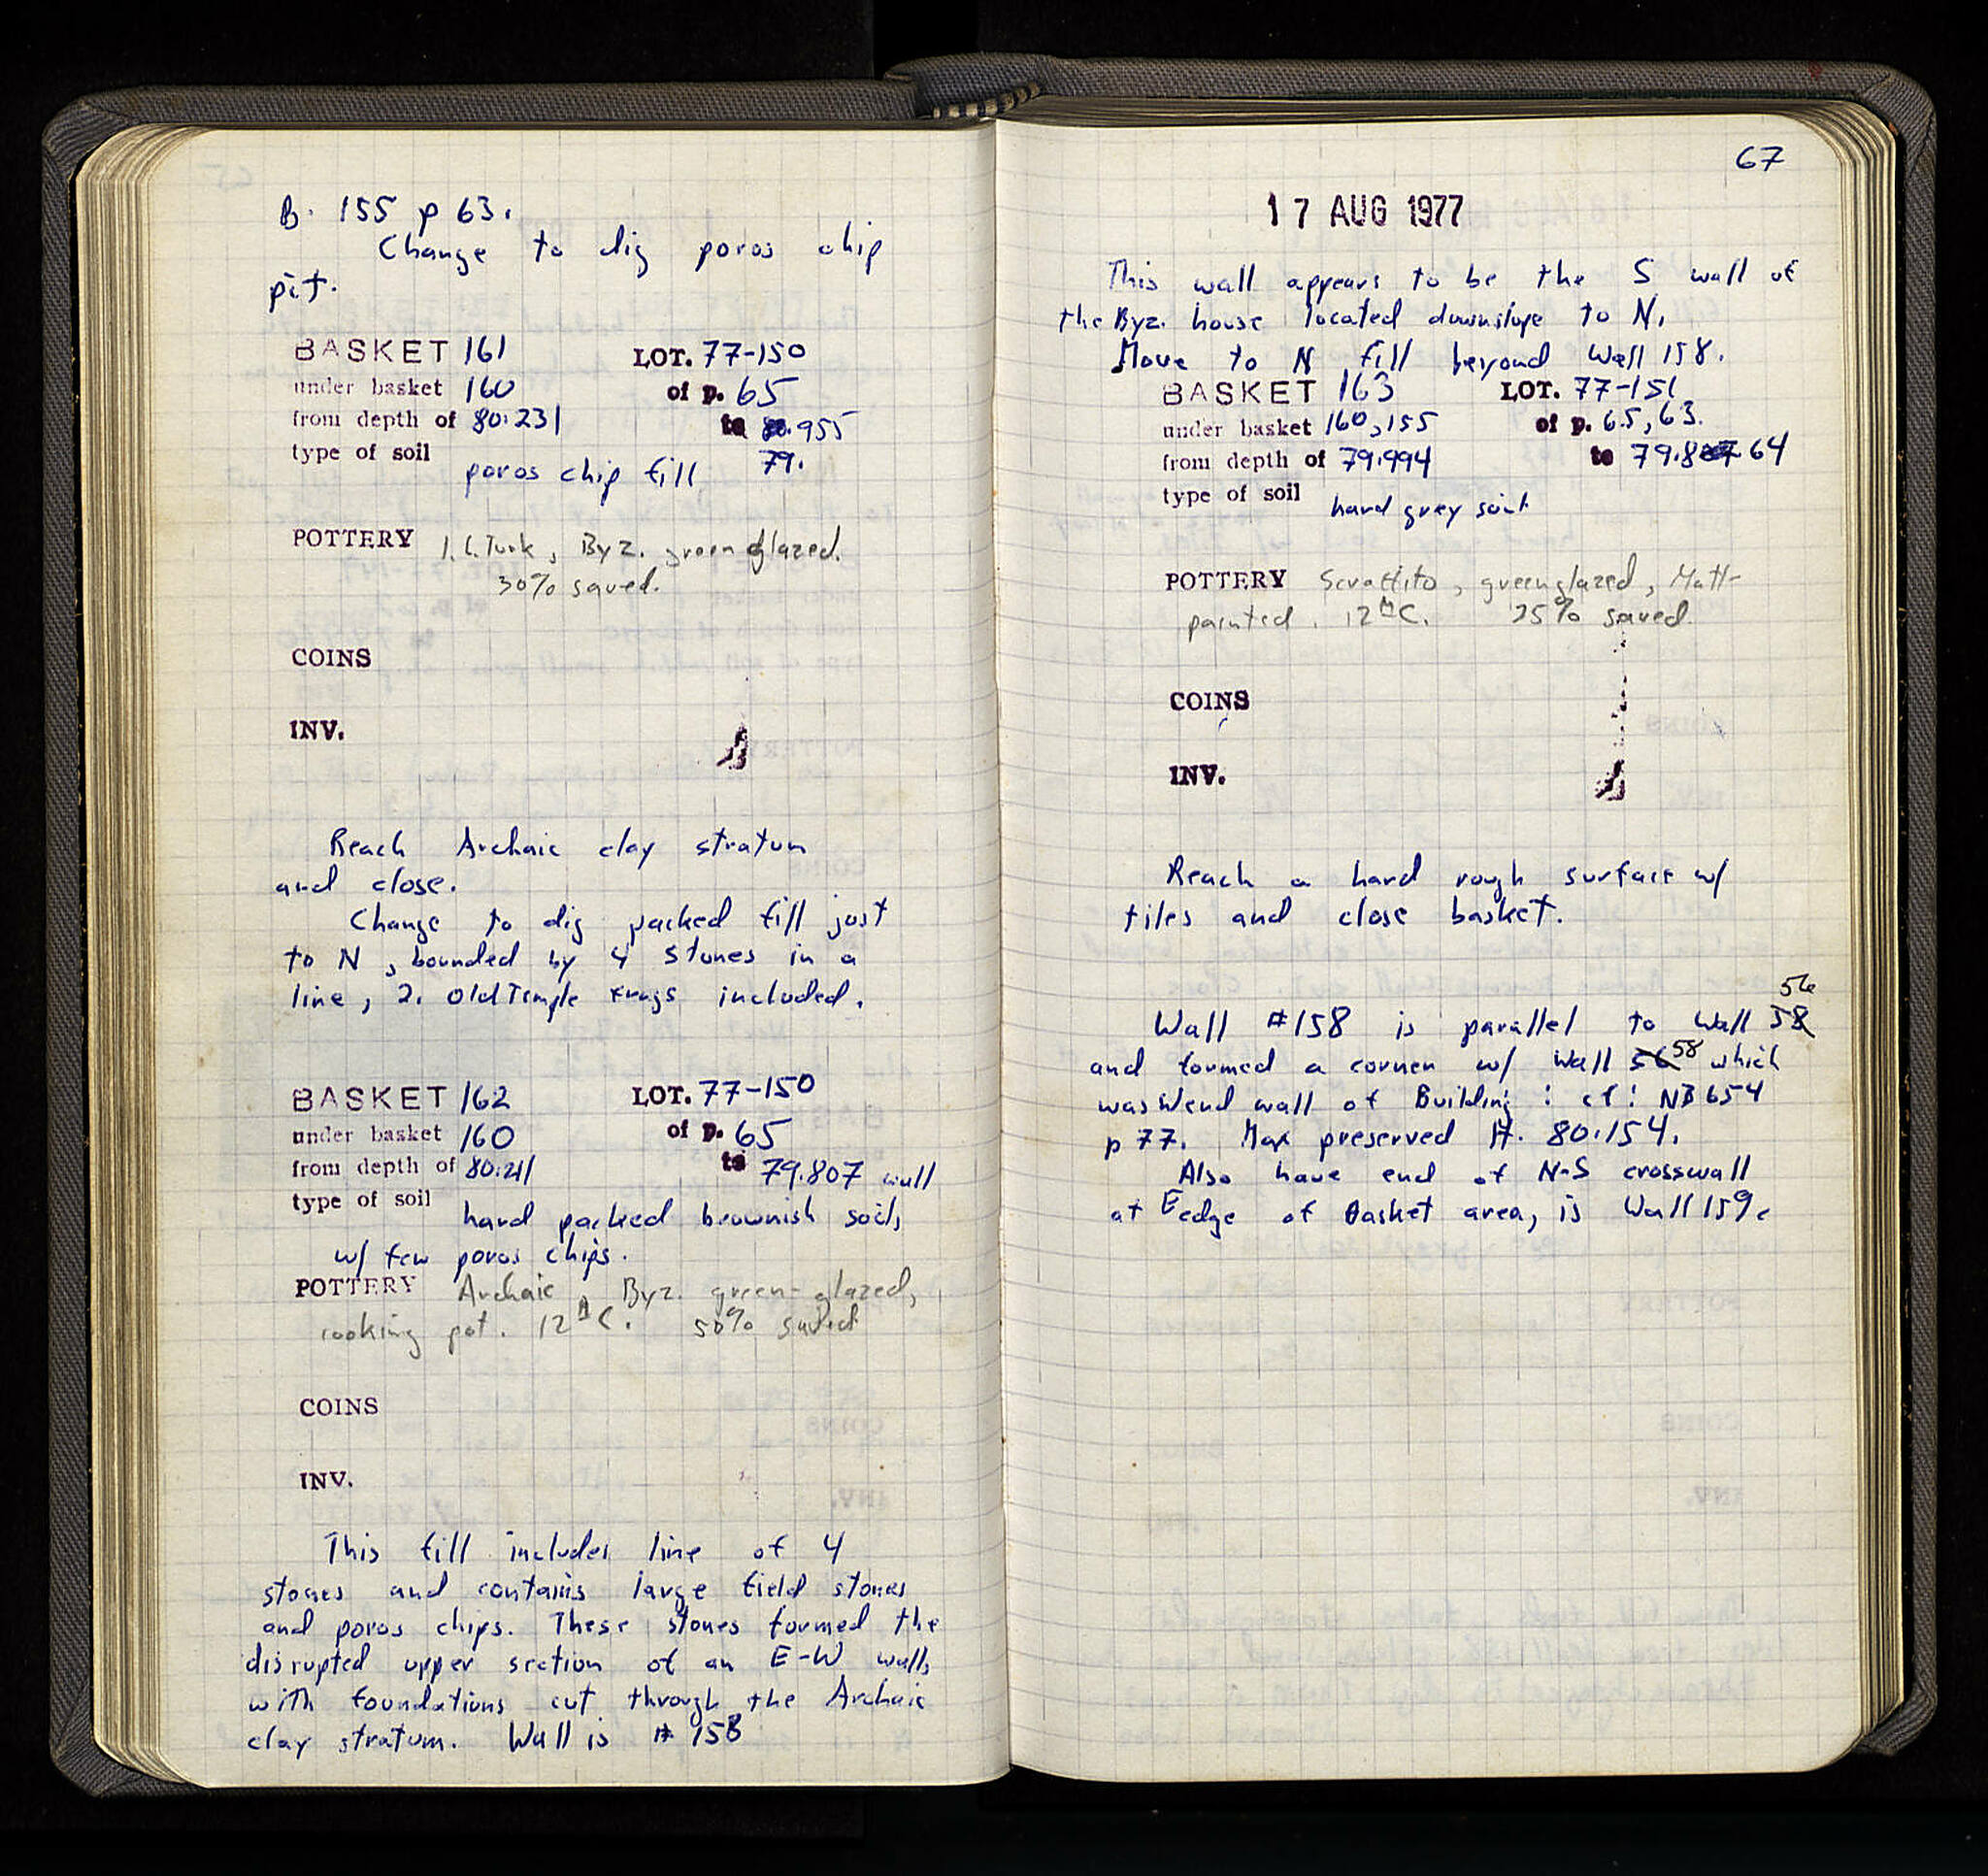 B. 155 p 63.
Change to dig poros chip
pit.
BASKET 161 LOT. 77-150
under basket 160 of p. 65
from depth of 80.231 to 80.955
79.
type of soil
poros chip fill
POTTERY Turk, Byz. green glazed.
30% saved.
COINS
INV.
Reach Archaic clay stratum
and close.
Change to dig packed fill just
to N, bounded by 4 stones in a
line, 2. Old Temple frags included.
BASKET 162 LOT. 77-150
under basket 160 of p. 65
from depth of 80.211 to 79.807 wall
type of soil
hard packed brownish soil,
w/ few poros chips.
POTTERY Archaic, Byz. green-glazed,
cooking pot. 12th C. 50% saved
COINS
INV.
This fill includes line of 4
stones and contains large field stones
and poros chips. These stones formed the
disrupted upper section of an E-W wall,
with foundations cut through the Archaic
clay stratum. Wall is # 158
67
17 AUG 1977
This wall appears to be the S wall of
the Byz. house located downslope to N.
Move to N fill beyond Wall 158.
BASKET 163 LOT. 77-151
under basket 160, 155 of p. 65, 63.
from depth of 79.994 to 79.8 64
type of soil
hard grey soil
POTTERY Scraffito, green glazed, Matt-
painted. 12th C. 25% saved
COINS
INV.
Reach a hard rough surface w/
tiles and close basket.
56
Wall #158 is parallel to Wall 58
and formed a corner w/ Wall 56 58 which
was W end wall of Building : cf: NB 654
p 77. Max preserved H. 80.154.
Also have end of N-S crosswall
at E edge of Basket area, is Wall 159.